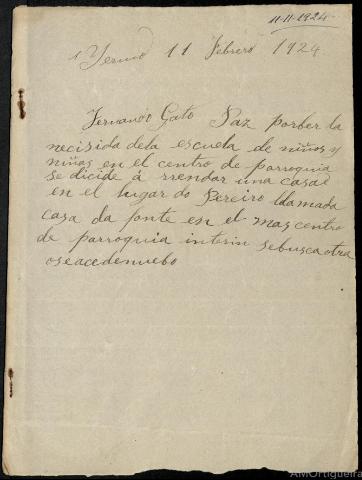 11-11-1924-
Yermo 11 Febrero 1924
Fernando Gato Paz porber la
necisida dela escuela de niños y
niñas en el centro de parroquia
se dicide á rrendar una casaé
en el lugar do Pereiro lldamada
casa da fonte es en el mas centro
de parroquia interin sebusca otra
oseacedenuebo
AMOrtigueira